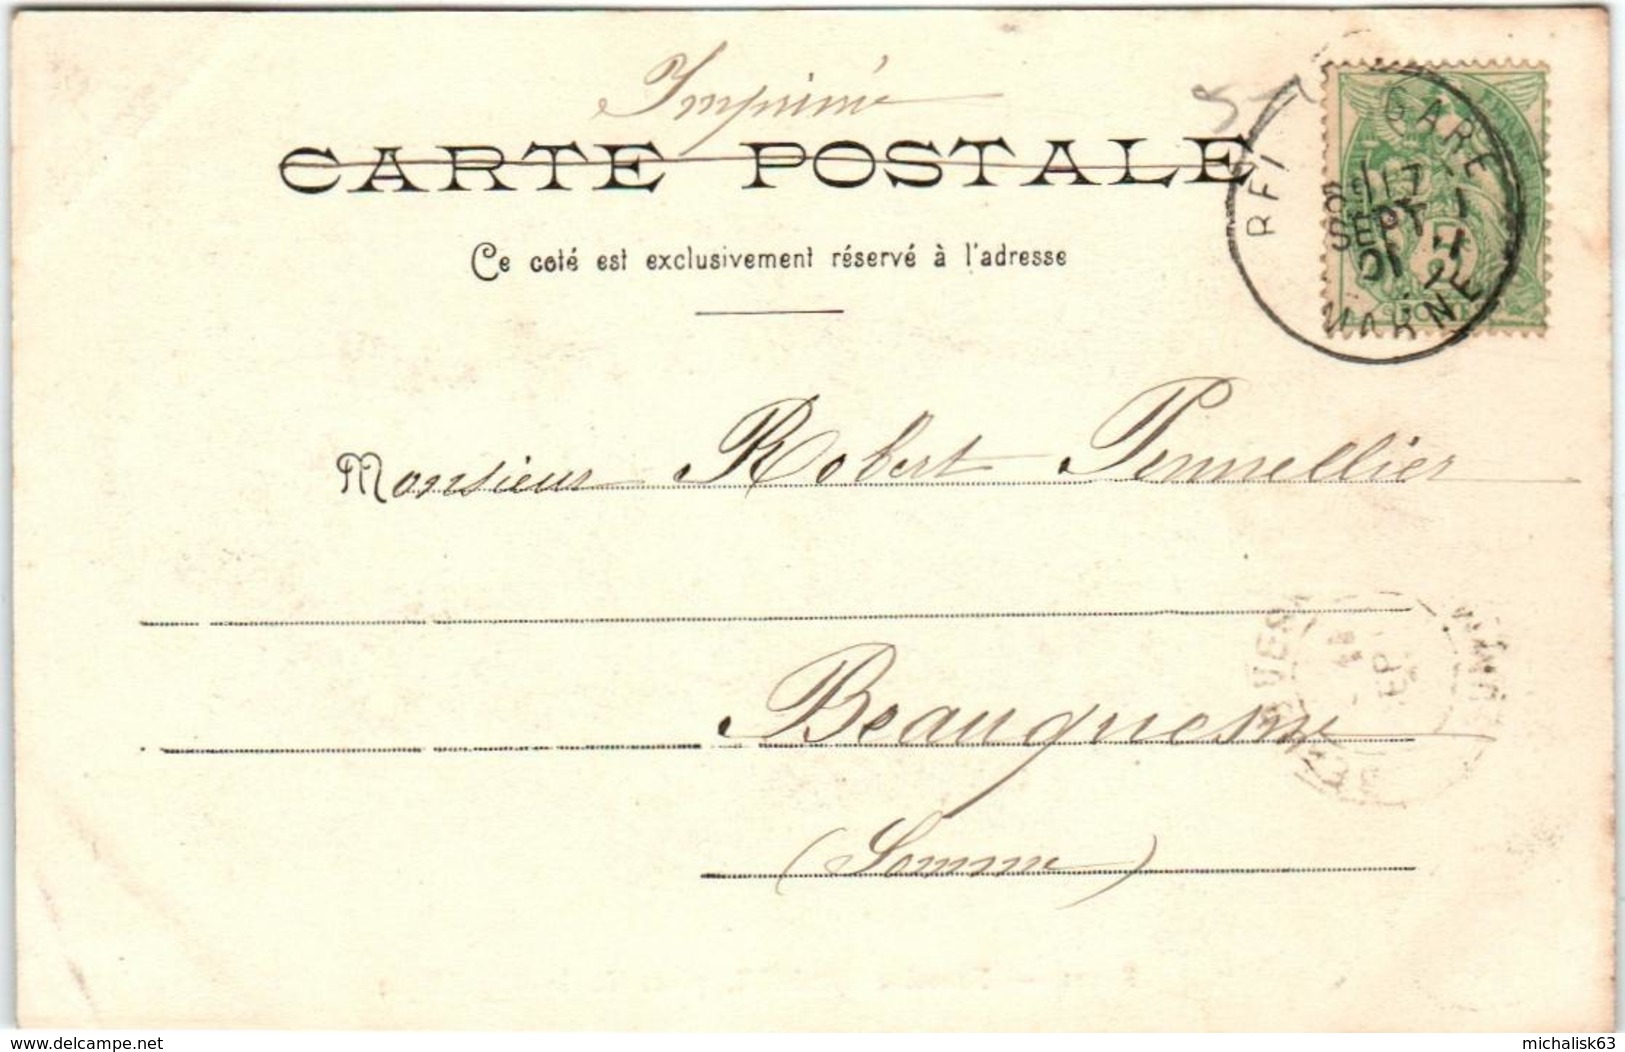 Imprimé
CARTE POSTALE
Ce coté est exclusivement réservé à l'adresse
GARE
MARNE
17
SEPT
01
Monsieur Robert Pennellier
Beauquesne
(Somme)
www.delcampe.net
michalisk63